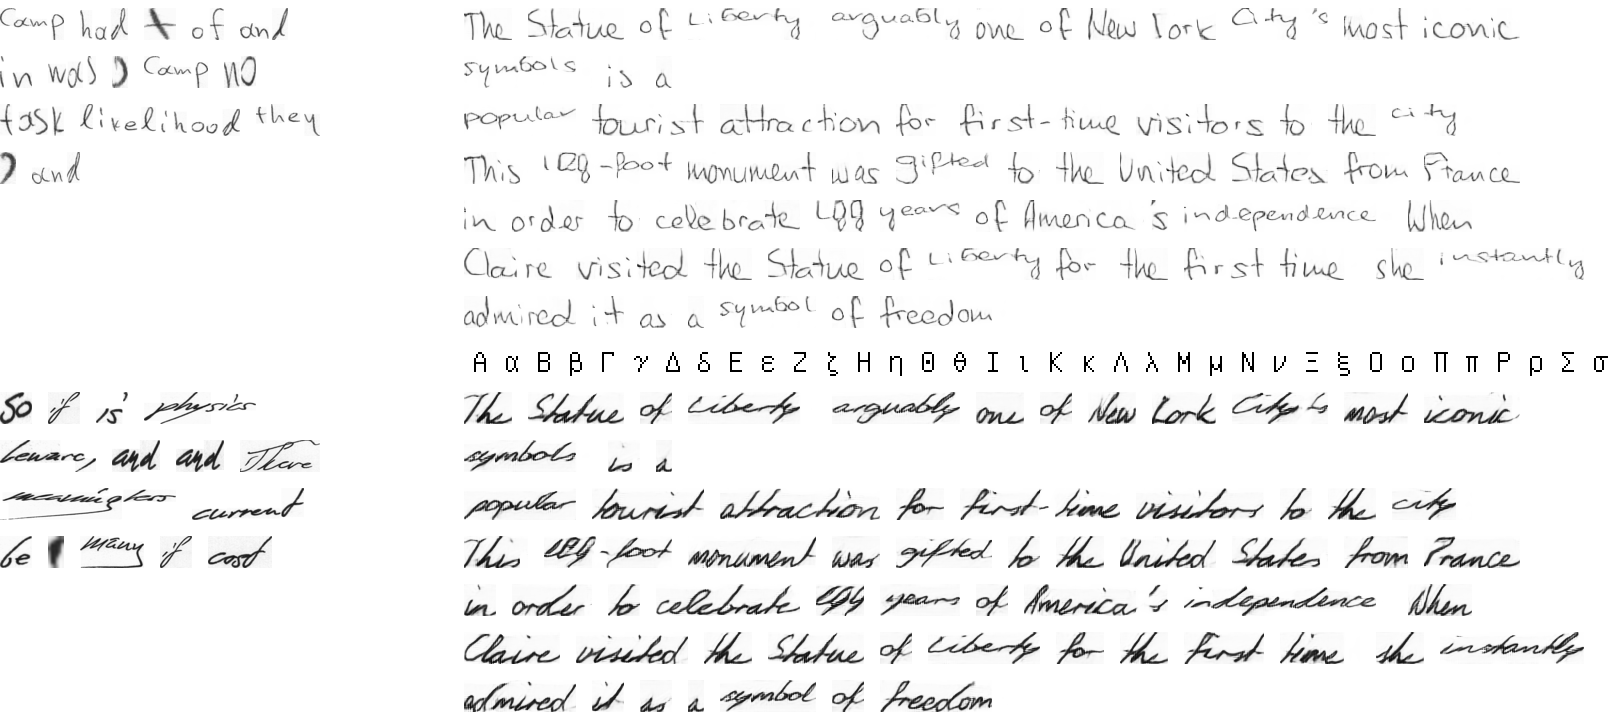 Camp had + of and
in was ) Camp no
task likelihood they
) and
The Statue of Liberty arguably one of New York City's most iconic
symbols is a
popular tourist attraction for first-time visitors to the city
This -foot monument was gifted to the United States from France
in order to celebrate years of America's independence When
Claire visited the Statue of Liberty for the first time she instantly
admired it as a symbol of freedom
Α α Β β Γ γ Δ δ Ε ε Ζ ζ Η η Θ θ Ι ι Κ κ Λ λ Μ μ Ν ν Ξ ξ Ο ο Π π Ρ ρ Σ σ
So if is' physics
beware, and and There
meaningless current
be many if cost
The Statue of Liberty arguably one of New York City's most iconic
symbols is a
popular tourist attraction for first-time visitors to the city
This -foot monument was gifted to the United States from France
in order to celebrate years of America's independence When
Claire visited the Statue of Liberty for the first time she instantly
admired it as a symbol of freedom